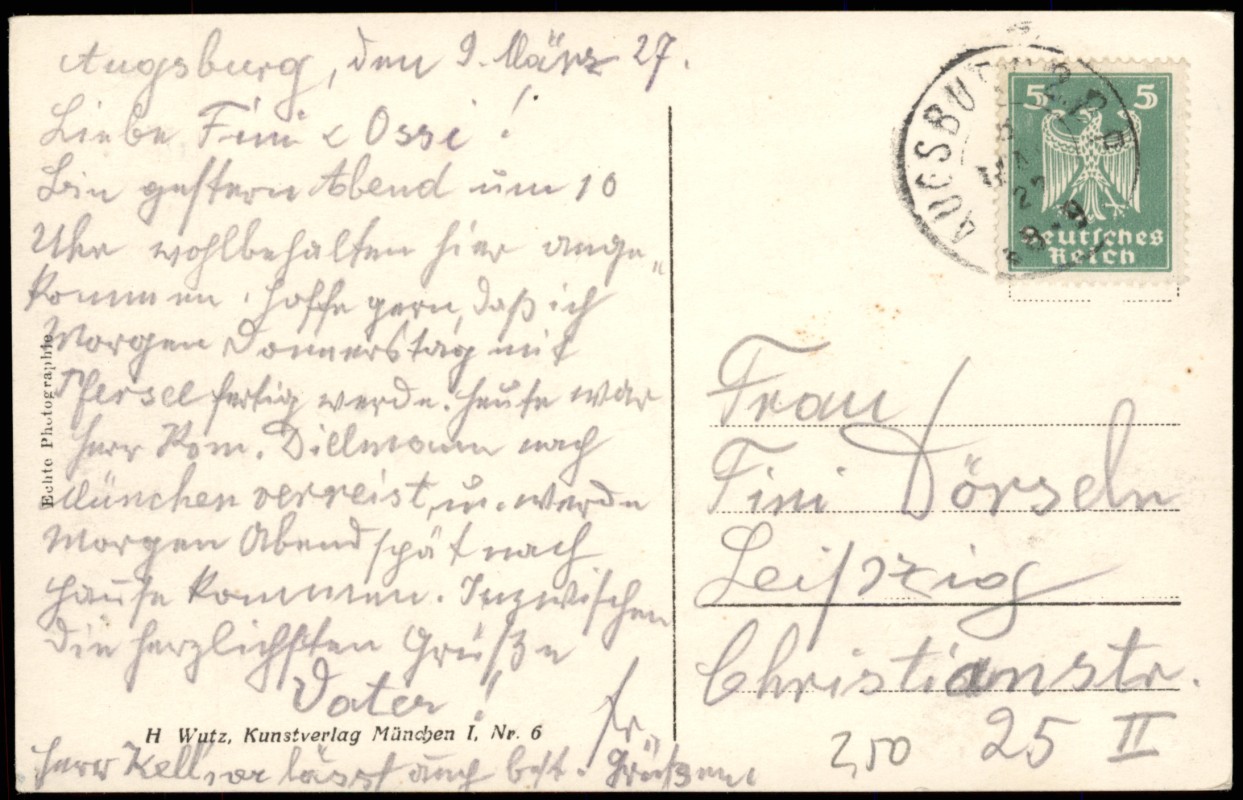 Augsburg, den 9. März 27.
Liebe Fini & Ossi!
Bin gestern Abend um 10
Uhr wohlbehalten hier ange„
kommen. Hoffe gern, daß ich
Morgen Donnerstag mit
Pfersee fertig werde. Heute war
Herr Kom. Dillmann nach
München verreist, u. werde
Morgen Abend spät nach
Hause kommen. Inzwischen
die herzlichsten Grüße
Vater!
Herr Kellner lässt auch best. Grüßen!
H Wutz, Kunstverlag München I, Nr. 6
Echte Photographie
AUGSBURG 2
5 5
Deutsches
Reich
Frau
Fini Dörseln
Leipzig
Christianstr.
25 II
2,50